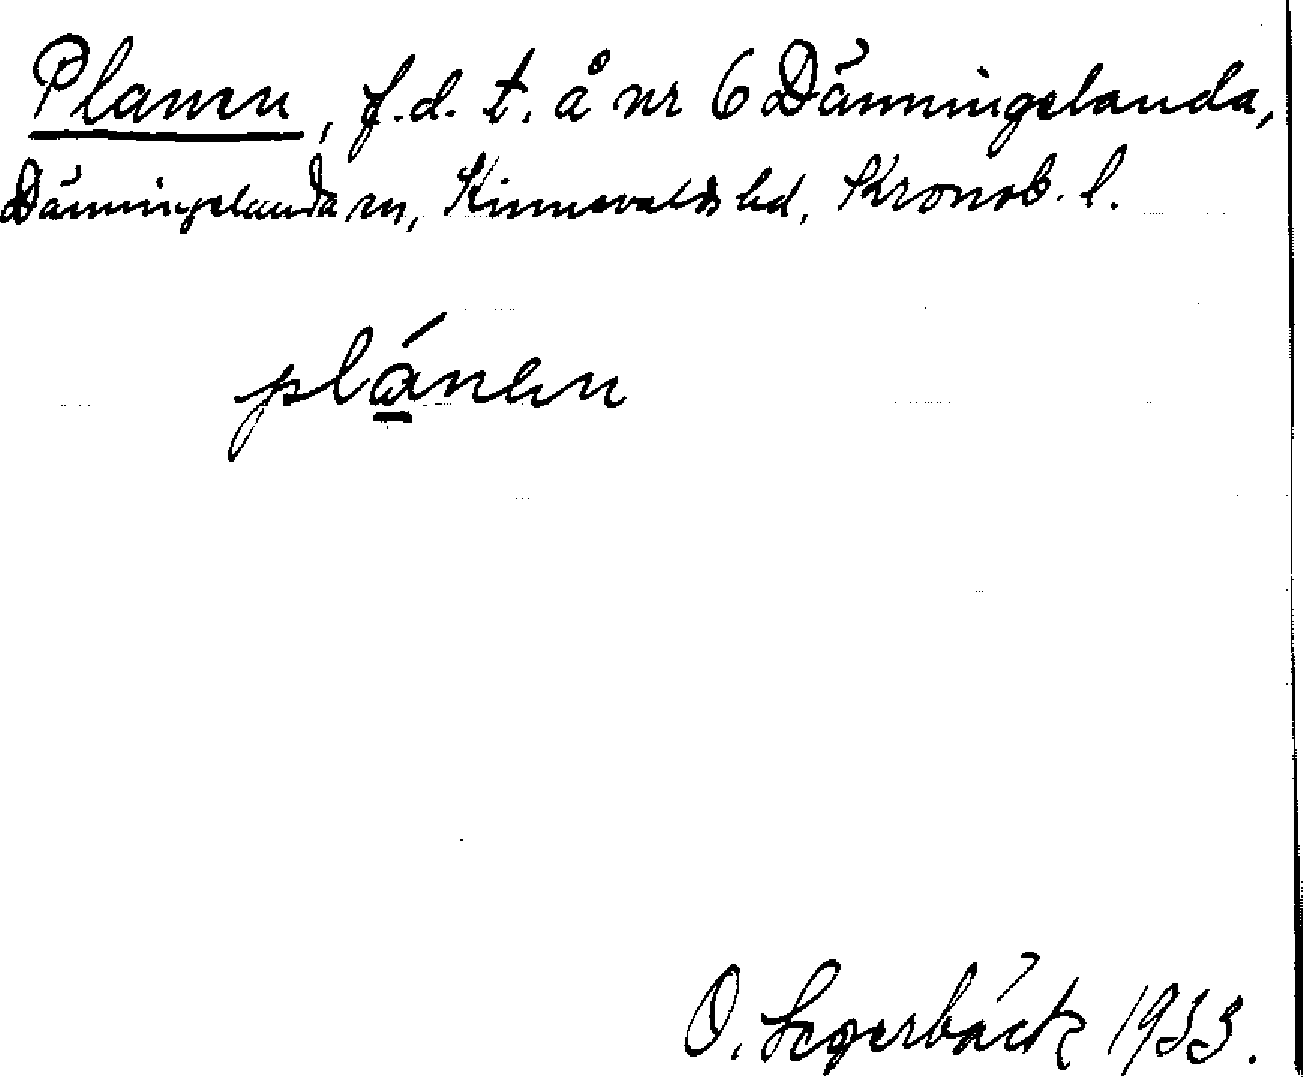 Planen, f.d. t. å nr 6 Dänningelanda,
Dänningelanda sn, Kinnevalds hd, Kronob. l.
plánen
O. Segerbäck 1933.